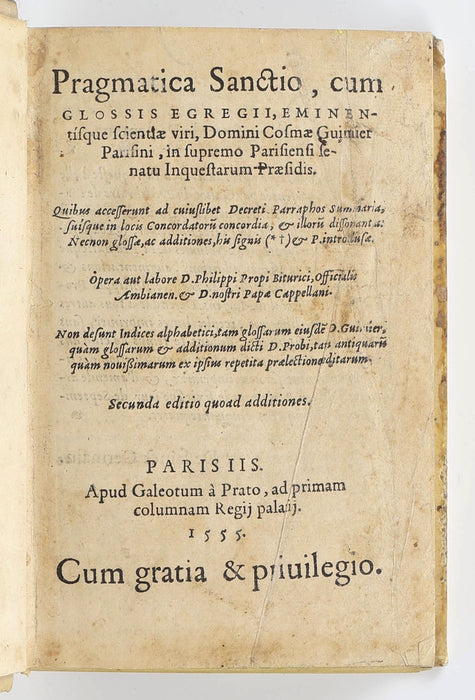 Pragmatica Sanctio, cum
GLOSSIS EGREGII, EMINEN-
tisque scientiæ viri, Domini Cosmæ Guimier
Parisini, in supremo Parisiensi se-
natu Inquestarum Præsidis.
Quibus accesserunt ad cuiuslibet Decreti Parraphos Summaria,
suisque in locis Concordatorū concordia, & illorū dissonantia:
Necnon glossæ, ac additiones, his signis (* †) & P. introclusæ.
Opera aut labore D. Philippi Propi Biturici, Officialis
Ambianen. & D. nostri Papæ Cappellani.
Non desunt Indices alphabetici, tam glossarum eiusdē D. Guimier,
quàm glossarum & additionum dicti D. Probi, tan antiquarū
quàm nouissimarum ex ipsius repetita prælectione ditarum.
Secunda editio quoad additiones.
PARISIIS.
Apud Galeotum à Prato, ad primam
columnam Regij palatij.
1555.
Cum gratia & priuilegio.